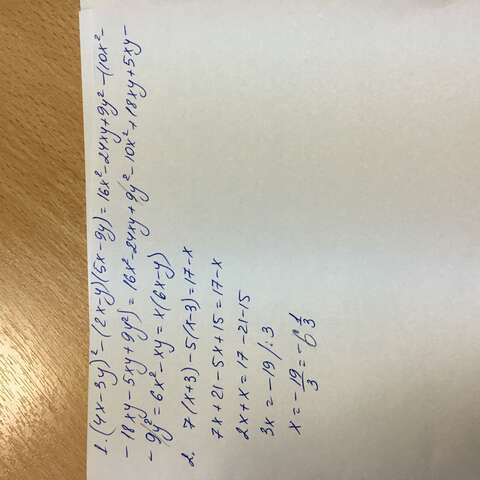 1. (4x-3y)² - (2x-y)(5x-9y) = 16x² - 24xy + 9y² - (10x² -
- 18xy - 5xy + 9y²) = 16x² - 24xy + 9y² - 10x² + 18xy + 5xy -
- 9y² = 6x² - xy = x(6x-y)
2. 7(x+3) - 5(x-3) = 17-x
7x + 21 - 5x + 15 = 17-x
2x + x = 17 - 21 - 15
3x = -19 /: 3
x = -19/3 = -6 1/3